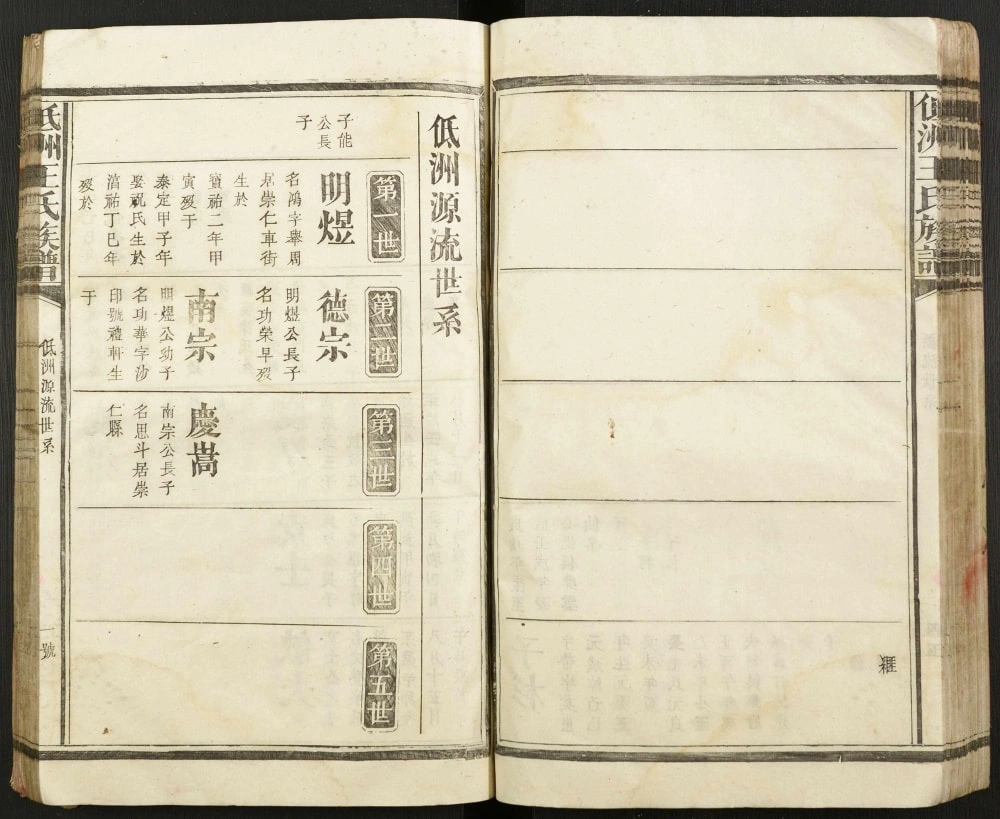 低洲王氏族譜
羅
低洲源流世系
子能
公長
子
第一世
明煜
名鴻字舉周
居崇仁車街
生於
寶祐二年甲
寅歿于
泰定甲子年
娶祝氏生於
淯祐丁巳年
歿於
第二世
德宗
明煜公長子
名功榮早歿
南宗
明煜公幼子
名功華字沙
印號禮軒生
于
第三世
慶嵩
南宗公長子
名思斗居崇
仁縣
第四世
第五世
低洲王氏族譜
低洲源流世系
一號